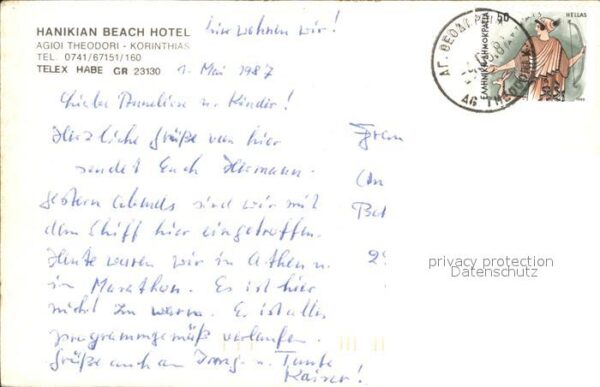 hier wohnen wir!
HANIKIAN BEACH HOTEL
AGIOI THEODORI - KORINTHIAS
TEL. 0741/67151/160
TELEX HABE GR 23130
1. Mai 1987
50
HELLAS
ΕΛΛΗΝΙΚΗ ΔΗΜΟΚΡΑΤΙΑ
ΑΓ. ΘΕΟΔΩΡΟΙ
AG THEODOROI
Liebe u. Kinder!
Herzliche Grüße von hier
sendet Euch Hermann.
Gestern abends sind wir mit
dem Schiff hier eingetroffen.
Heute waren wir in Athen u.
in Marathon. Es ist hier
nicht zu warm. Es ist alles
programmgemäß verlaufen.
Grüße auch an u. Tante
Kaiser!
privacy protection
Datenschutz